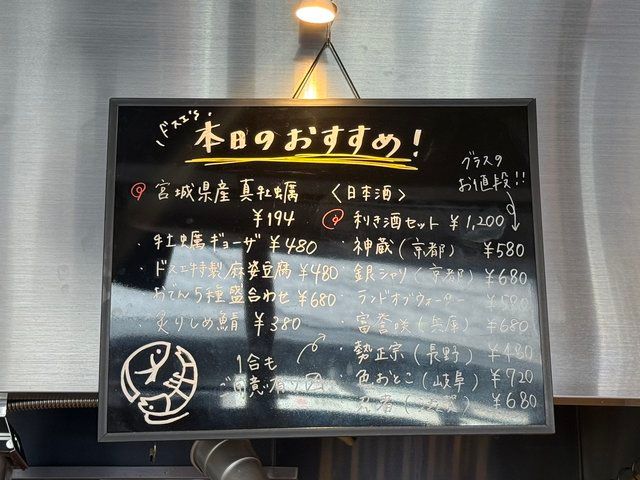 ドスエの
本日のおすすめ!
宮城県産 真牡蠣
¥194
牡蠣ギョーザ ¥480
ドスエ特製麻婆豆腐 ¥480
おでん5種盛合わせ ¥680
炙りしめ鯖 ¥380
〈日本酒〉
グラスの
お値段!!
利き酒セット ¥1,200
神蔵(京都) ¥580
銀シャリ(京都) ¥680
ランドオブウォーター ¥580
富誉咲(兵庫) ¥680
勢正宗(長野) ¥480
色おとこ(岐阜) ¥720
忍者(滋賀) ¥680
1合も